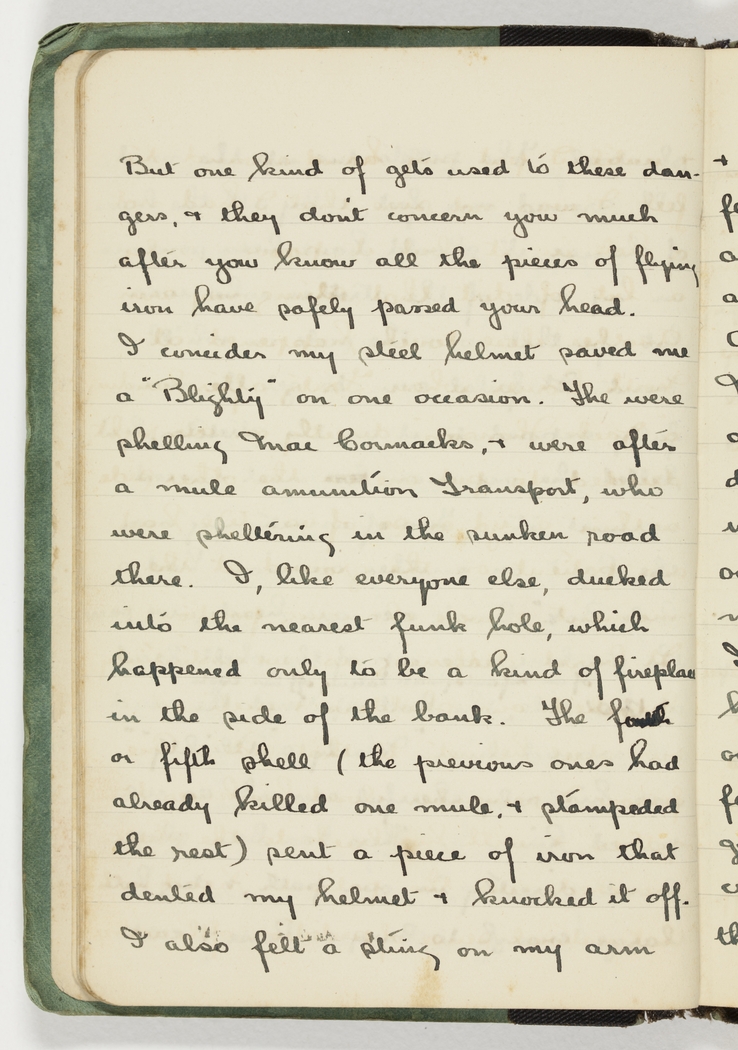 But one kind of gets used to these dan-
gers, & they don't concern you much
after you know all the pieces of flying
iron have safely passed your head.
I concider my steel helmet saved me
a "Blighty" on one occasion. The were
shelling Mac Cormacks, & were after
a mule amunition Transport, who
were sheltering in the sunken road
there. I, like everyone else, ducked
into the nearest funk hole, which
happened only to be a kind of fireplace
in the side of the bank. The fourth
or fifth shell (the previous ones had
already killed one mule, & stampeded
the rest) sent a piece of iron that
dented my helmet & knocked it off.
I also felt a sting on my arm